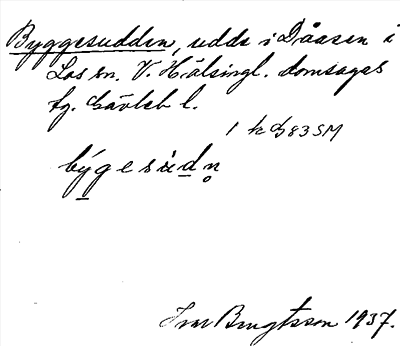 Byggesudden, udde i Dåasen i
Los sn. V. Hälsingl. domsagas
tg. Gävleb l.
1 k G83SM
býgesùdn
Ivar Bengtsson 1937.